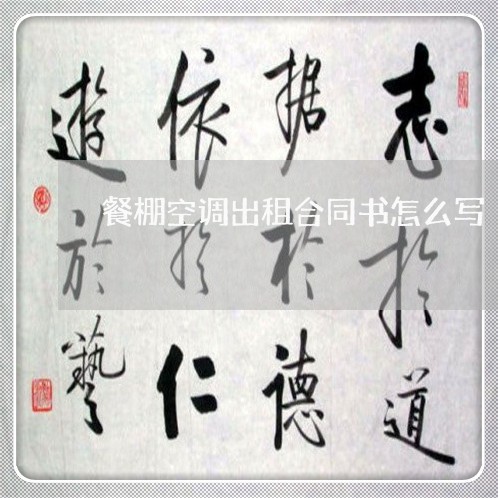 志於道
据於德
依於仁
遊於藝
餐棚空调出租合同书怎么写